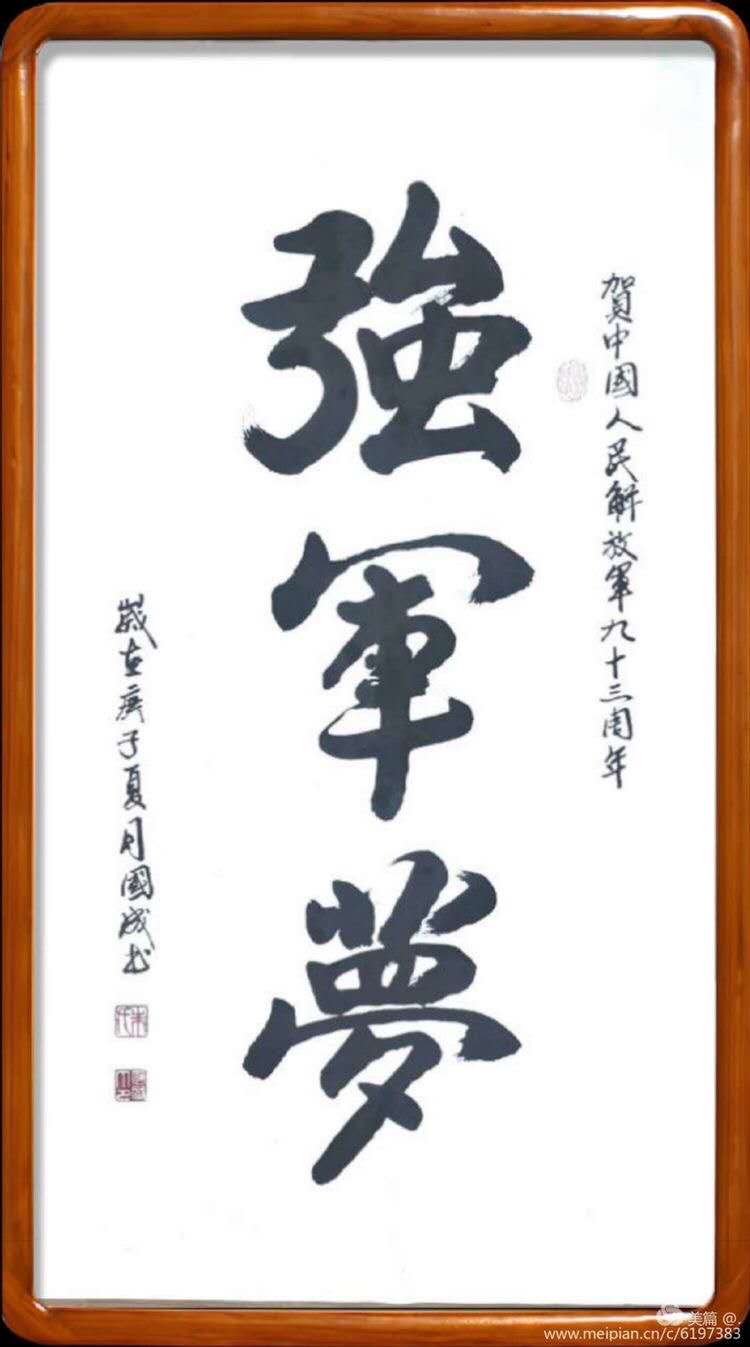 賀中國人民解放軍九十三周年
強軍夢
歲在庚子夏月國成書
美篇 @.
www.meipian.cn/c/6197383